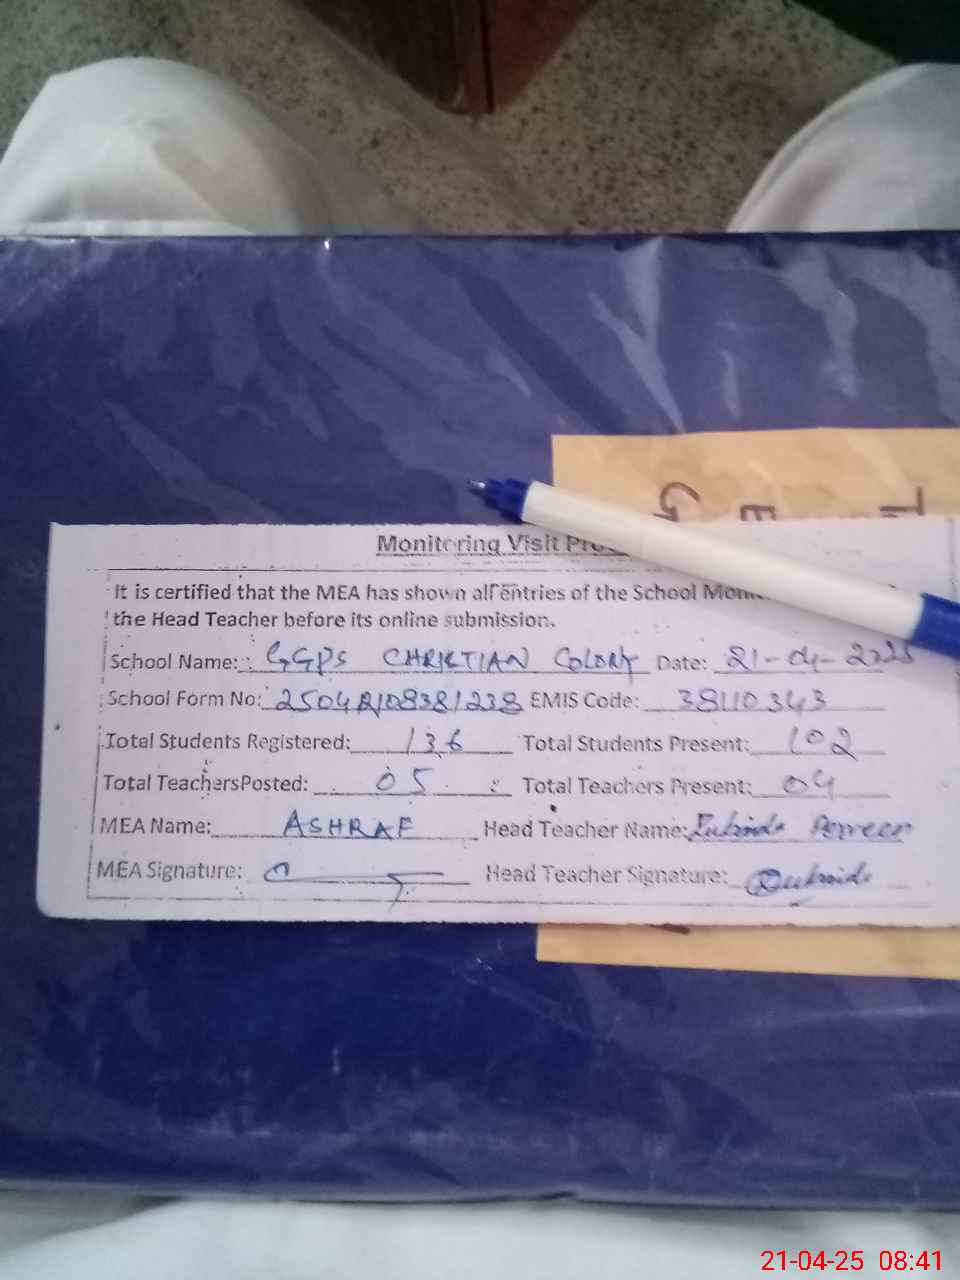 T
E
G
Monitoring Visit
It is certified that the MEA has shown all entries of the School
the Head Teacher before its online submission.
School Name: GGPS CHRISTIAN COLONY Date: 21-04-2025
School Form No: EMIS Code: 38110343
Total Students Registered: 136 Total Students Present: 102
Total TeachersPosted: 05 Total Teachers Present: 04
MEA Name: ASHRAF Head Teacher Name:
MEA Signature: Head Teacher Signature:
21-04-25 08:41